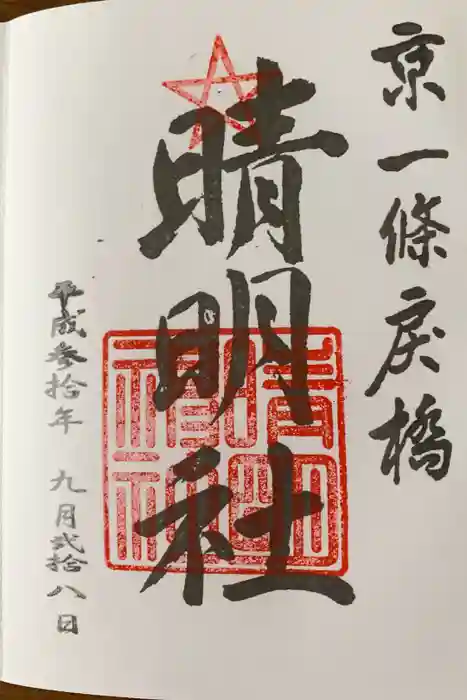 京一條戻橋
晴明社
晴明神社
平成参拾年 九月弐拾八日